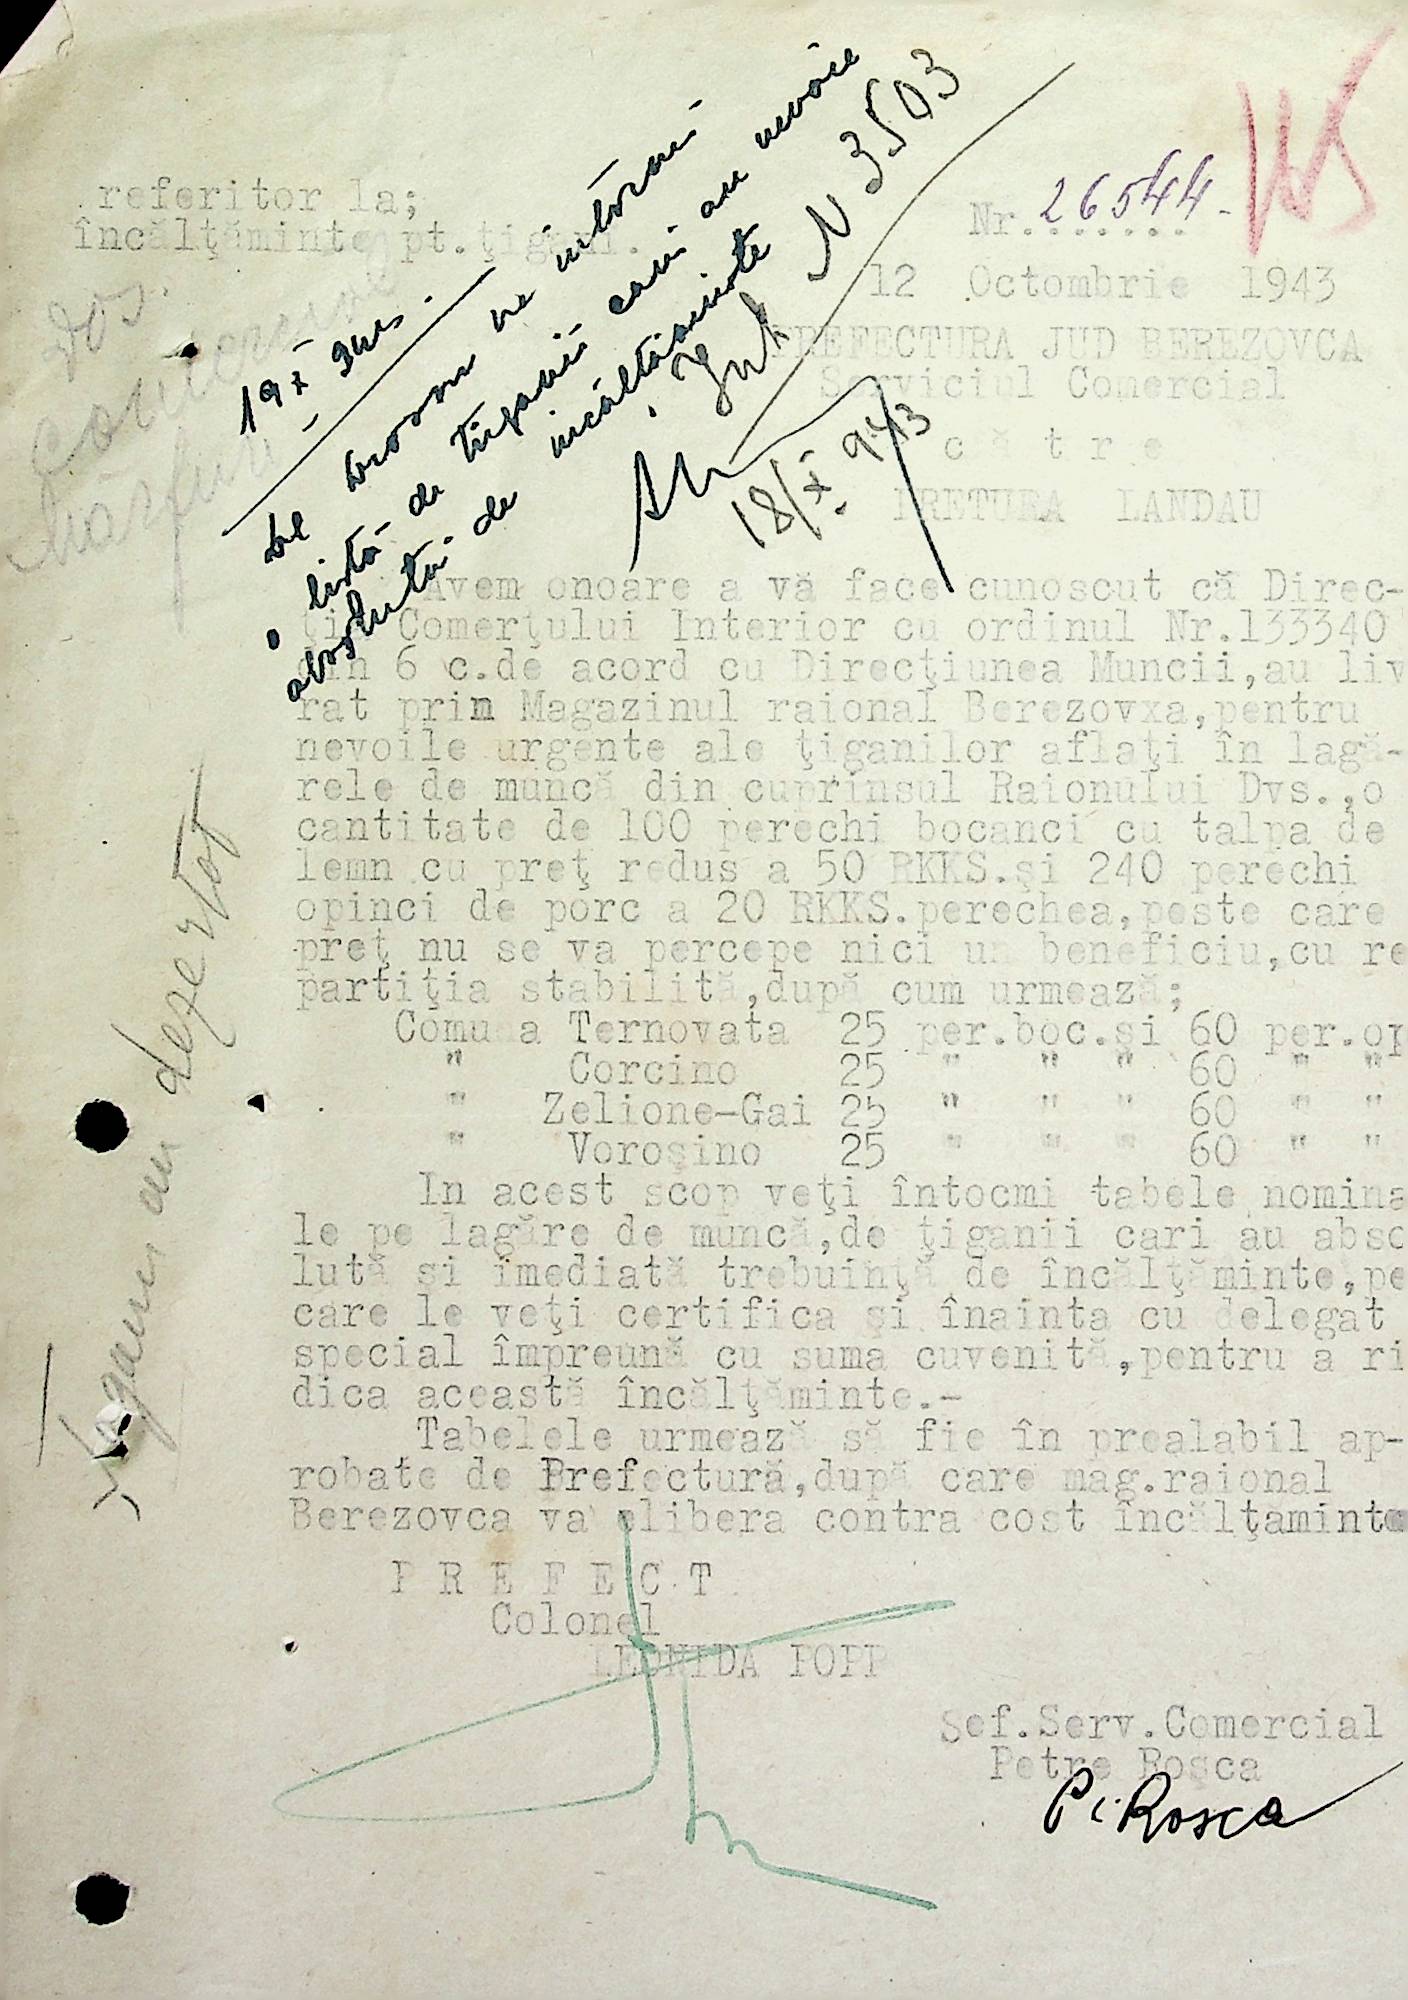 referitor la;
încălţăminte pt.ţigani.
Nr. 26544.-
12 Octombrie 1943
PREFECTURA JUD BEREZOVCA
Serviciul Comercial
c ă t r e
PRETURA LANDAU
Dos.
19 X
o listă de ţiganii cari au nevoie
absolută de încălţăminte
N 3503
18/X 943
Avem onoare a vă face cunoscut că Direc-
ţia Comerţului Interior cu ordinul Nr.133340
din 6 c.de acord cu Direcţiunea Muncii,au liv
rat prin Magazinul raional Berezovxa,pentru
nevoile urgente ale ţiganilor aflaţi în lagă-
rele de muncă din cuprinsul Raionului Dvs.,o
cantitate de 100 perechi bocanci cu talpa de
lemn cu preţ redus a 50 RKKS.şi 240 perechi
opinci de porc a 20 RKKS.perechea,peste care
preţ nu se va percepe nici un beneficiu,cu re
partiţia stabilită,după cum urmează;
Comuna Ternovata 25 per.boc.şi 60 per.op
" Corcino 25 " " " 60 " "
" Zelione-Gai 25 " " " 60 " "
" Voroşino 25 " " " 60 " "
In acest scop veţi întocmi tabele nomina
le pe lagăre de muncă,de ţiganii cari au abso
lută si imediată trebuinţă de încălţăminte,pe
care le veţi certifica şi înainta cu delegat
special împreună cu suma cuvenită,pentru a ri
dica această încălţăminte.-
Tabelele urmează să fie în prealabil ap-
robate de Prefectură,după care mag.raional
Berezovca va elibera contra cost încălţăminte
P R E F E C T
Colonel
LEONIDA POPP
Şef.Serv.Comercial
Petre Roşca
P. Rosca
Ţiganii au dezertat